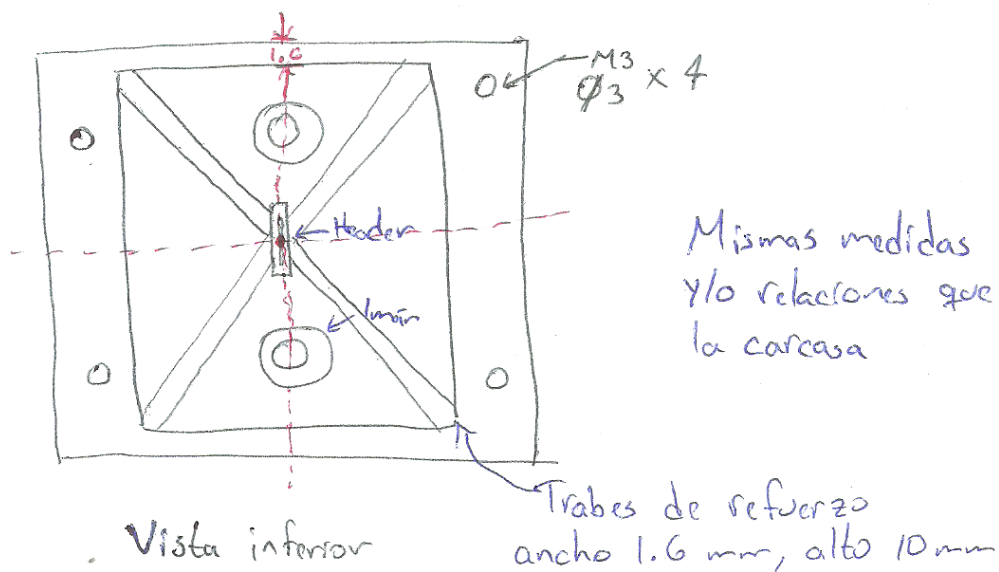 1.6
M3
Ø3 x 4
Header
Imán
Mismas medidas
y/o relaciones que
la carcasa
Trabes de refuerzo
ancho 1.6 mm, alto 10 mm
Vista inferior